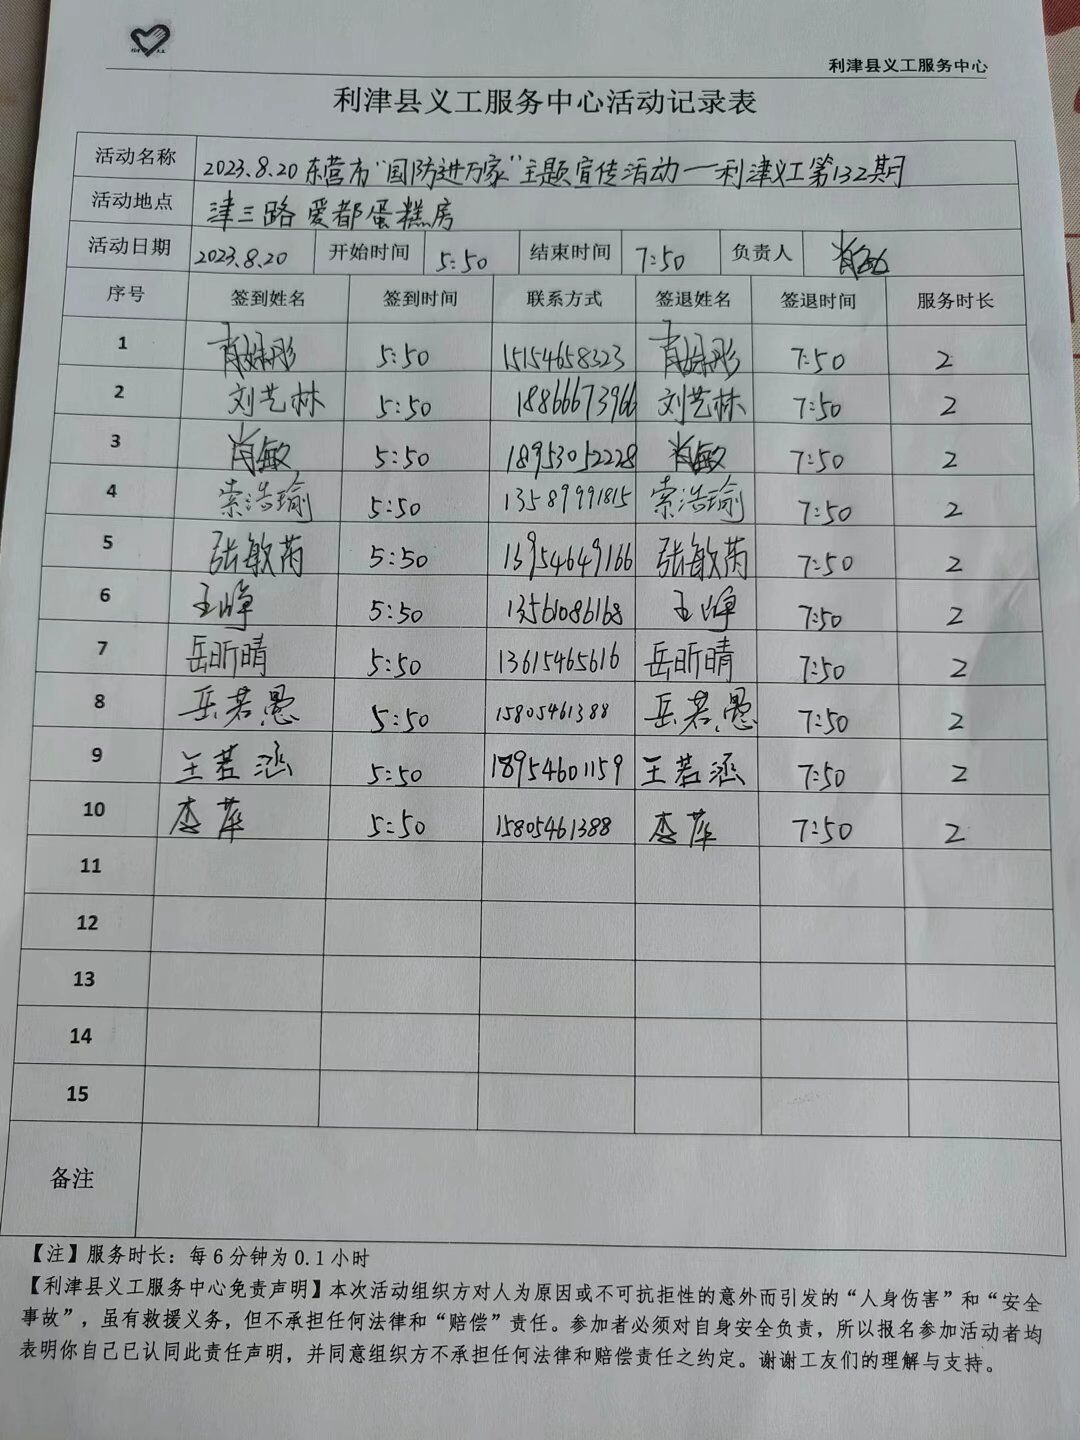 利津县义工服务中心
利津县义工服务中心活动记录表
活动名称 2023.8.20东营市“国防进万家”主题宣传活动—利津义工第132期
活动地点 津三路 爱都蛋糕房
活动日期 2023.8.20 开始时间 5:50 结束时间 7:50 负责人 肖敏
序号 签到姓名 签到时间 联系方式 签退姓名 签退时间 服务时长
1 肖姝彤 5:50 15154658323 肖姝彤 7:50 2
2 刘艺林 5:50 18866673966 刘艺林 7:50 2
3 肖敏 5:50 18953052228 肖敏 7:50 2
4 索浩瑜 5:50 13589991815 索浩瑜 7:50 2
5 张敏芮 5:50 13954649166 张敏芮 7:50 2
6 王峥 5:50 13561086168 王峥 7:50 2
7 岳昕晴 5:50 13615465616 岳昕晴 7:50 2
8 岳若愚 5:50 15805461388 岳若愚 7:50 2
9 王若涵 5:50 18954601159 王若涵 7:50 2
10 李萍 5:50 15805461388 李萍 7:50 2
11
12
13
14
15
备注
【注】服务时长：每6分钟为0.1小时
【利津县义工服务中心免责声明】本次活动组织方对人为原因或不可抗拒性的意外而引发的“人身伤害”和“安全
事故”，虽有救援义务，但不承担任何法律和“赔偿”责任。参加者必须对自身安全负责，所以报名参加活动者均
表明你自己已认同此责任声明，并同意组织方不承担任何法律和赔偿责任之约定。谢谢工友们的理解与支持。